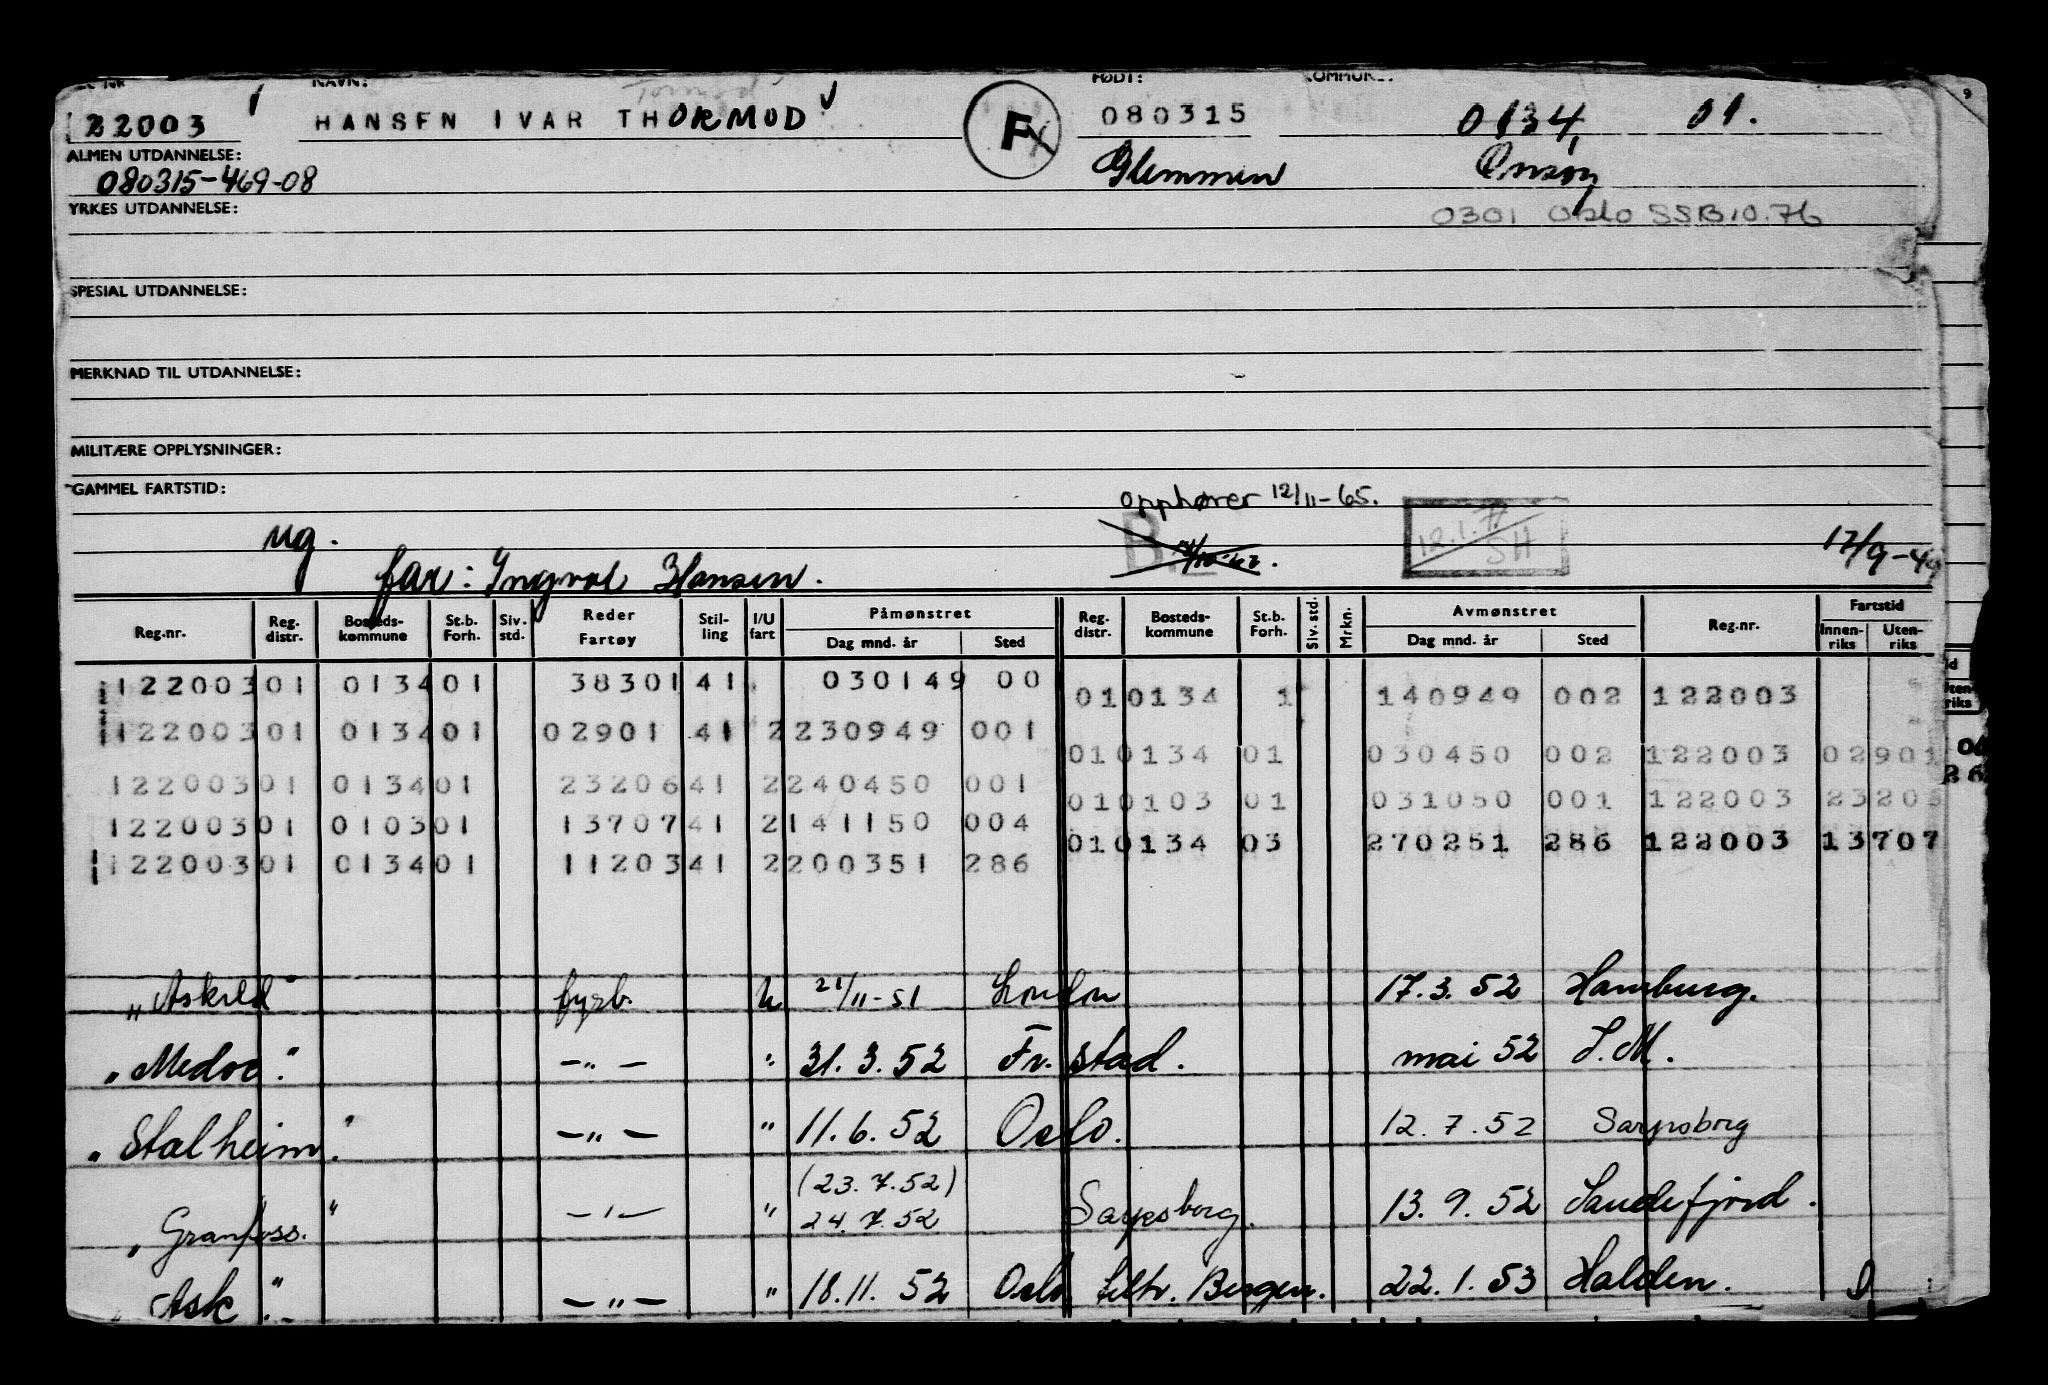 NAVN: FØDT: KOMMUNE:
Tormod
22003 HANSEN IVAR THORMOD F 080315 0134 01.
ALMEN UTDANNELSE: Glemmen Onsøy
080315-469-08
YRKES UTDANNELSE: 0301 Oslo SSB 10.76
SPESIAL UTDANNELSE:
MERKNAD TIL UTDANNELSE:
MILITÆRE OPPLYSNINGER:
GAMMEL FARTSTID: opphører 12/11-65.
ug. 12.1.77 SH 17/9-49
far: Ingval Hansen.
Reg.nr. Reg. distr. Bosteds-kommune St.b. Forh. Siv. std. Reder Fartøy Stil-ling I/U fart Påmønstret Dag mnd. år Sted Reg. distr. Bosteds-kommune St.b. Forh. Siv. std. Mrkn. Avmønstret Dag mnd. år Sted Reg.nr. Fartstid Innen-riks Uten-riks
122003 01 0134 01 38301 41 030149 00 01 0134 1 140949 002 122003
122003 01 0134 01 02901 41 2 230949 001 01 0134 01 030450 002 122003 02901
122003 01 0134 01 23206 41 2 240450 001 01 0103 01 031050 001 122003 2320
122003 01 0103 01 13707 41 2 141150 004 01 0134 03 270251 286 122003 13707
122003 01 0134 01 11203 41 2 200351 286
"Askild" fyrb. U 21/11-51 London 17.3.52 Hamburg.
"Medoc". -"- " 31.3.52 Fr.stad. mai 52 S.M.
"Stalheim". -"- " 11.6.52 Oslo. 12.7.52 Sarpsborg
(23.7.52)
"Granfoss." -"- " 24.7.52 Sarpsborg. 13.9.52 Sandefjord.
"Ask". -"- " 18.11.52 Oslo tilh. Bergen. 22.1.53 Halden.